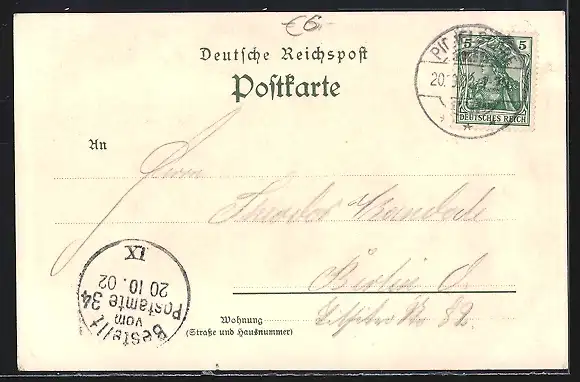 €6.-
Deutsche Reichspost
Postkarte
5 5
DEUTSCHES REICH
20.
An
Herrn
Theodor
Berlin O.
Wohnung
(Straße und Hausnummer)
No 82
Bestellt
vom
Postamte 34
20 10. 02
IX